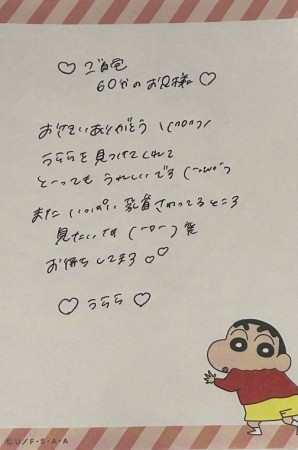 ♡ ご自宅
60分のお兄様 ♡
おさそいありがとう \(^o^)/
うららを見つけてくれて
とーってもうれしいです (・ω・)
また いっぱい 乳首さわってるところ
見たいな (-o-) 笑
お待ちしてます ♡♡
♡ うらら ♡
©U/F・S・A・A